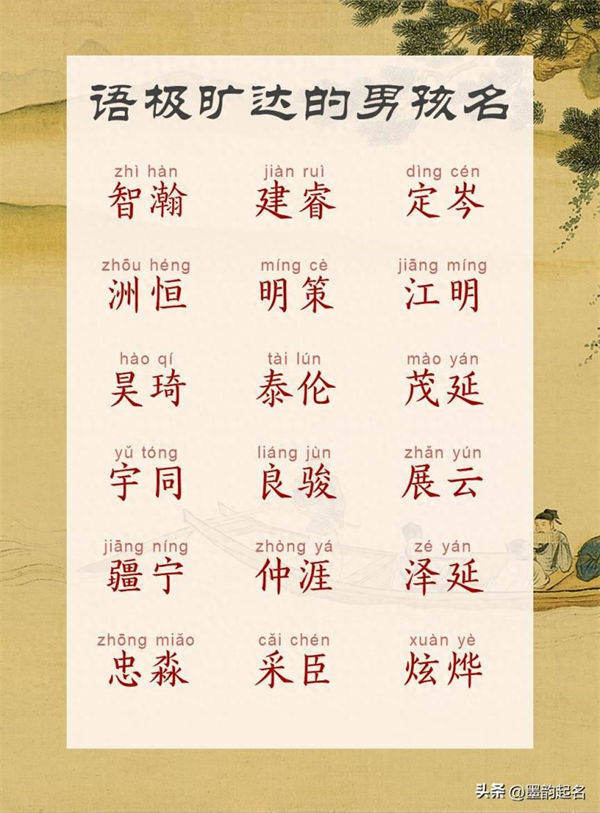 语极旷达的男孩名
zhì hàn jiàn ruì dìng cén
智瀚 建睿 定岑
zhōu héng míng cè jiāng míng
洲恒 明策 江明
hào qí tài lún mào yán
昊琦 泰伦 茂延
yǔ tóng liáng jùn zhǎn yún
宇同 良骏 展云
jiāng níng zhòng yá zé yán
疆宁 仲涯 泽延
zhōng miǎo cǎi chén xuàn yè
忠淼 采臣 炫烨
头条 @墨韵起名